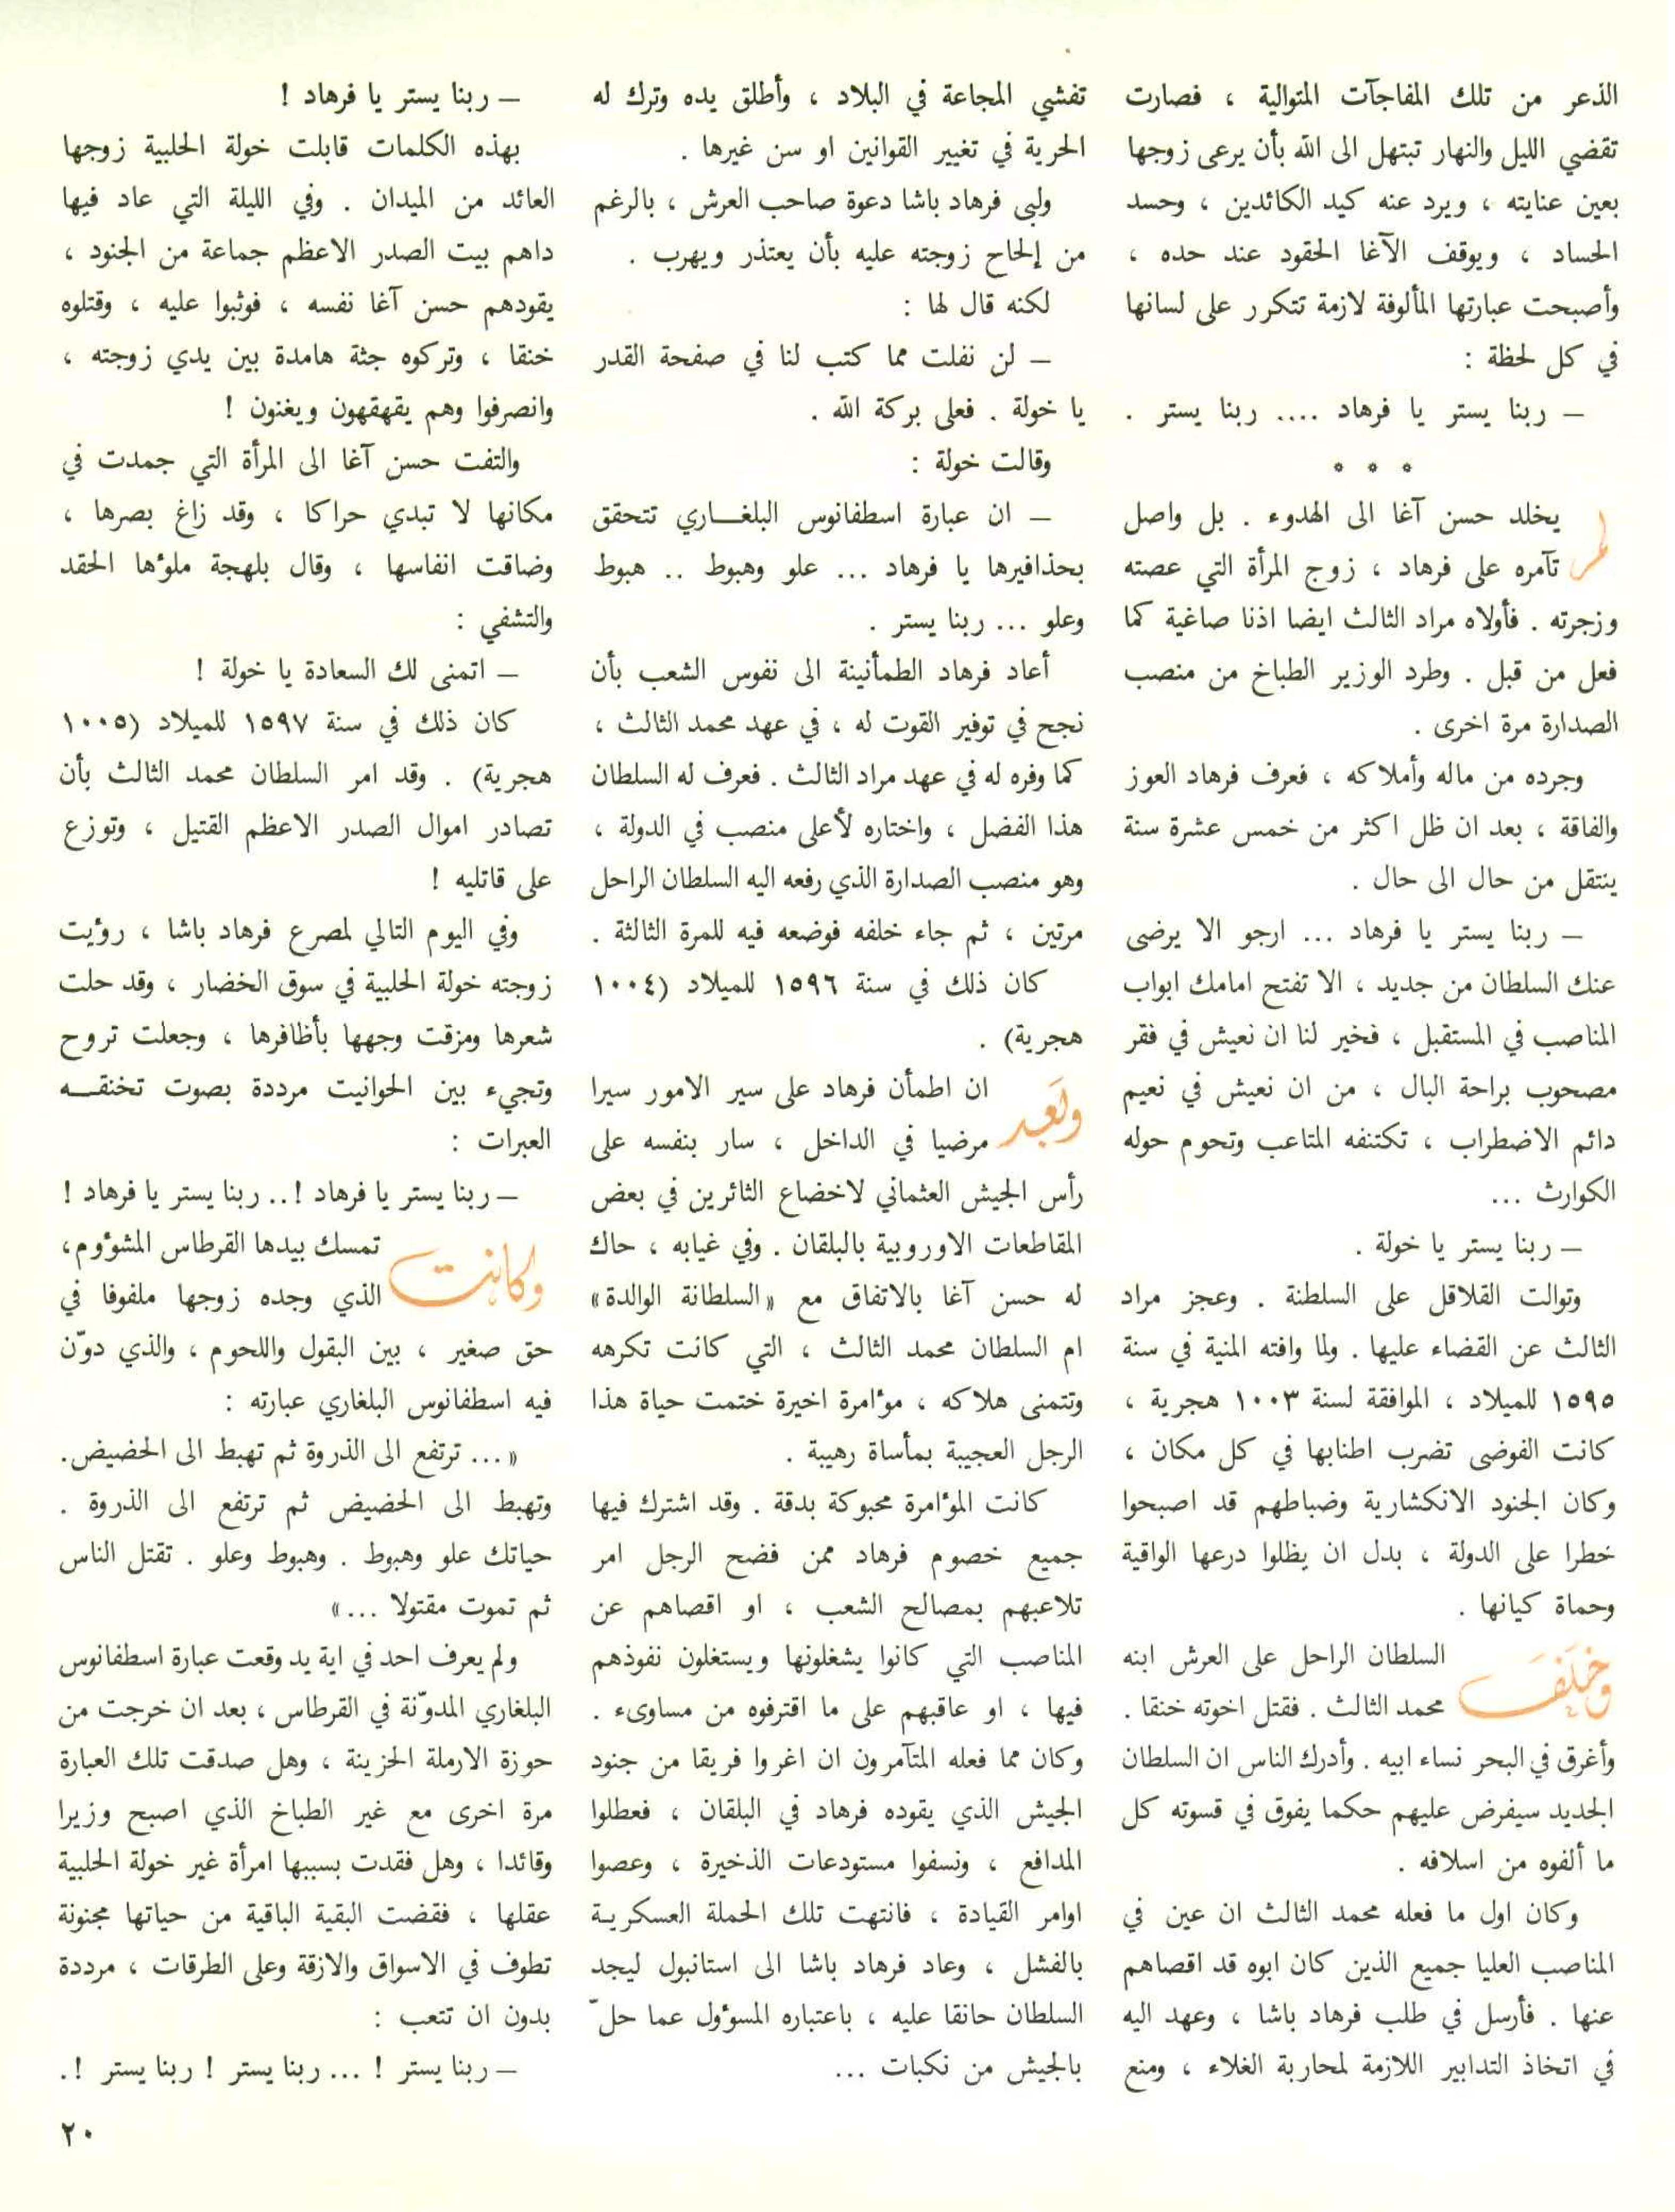 الذعر من تلك المفاجآت المتوالية ، فصارت
تقضي الليل والنهار تبتهل الى الله بأن يرعى زوجها
بعين عنايته ، ويرد عنه كيد الكائدين ، وحسد
الحساد ، ويوقف الآغا الحقود عند حده ،
وأصبحت عبارتها المألوفة لازمة تتكرر على لسانها
في كل لحظة :
– ربنا يستر يا فرهاد .... ربنا يستر .
* * *
لم يخلد حسن آغا الى الهدوء . بل واصل
تآمره على فرهاد ، زوج المرأة التي عصته
وزجرته . فأولاه مراد الثالث ايضا اذنا صاغية كما
فعل من قبل . وطرد الوزير الطباخ من منصب
الصدارة مرة اخرى .
وجرده من ماله وأملاكه ، فعرف فرهاد العوز
والفاقة ، بعد ان ظل اكثر من خمس عشرة سنة
ينتقل من حال الى حال .
– ربنا يستر يا فرهاد ... ارجو الا يرضى
عنك السلطان من جديد ، الا تفتح امامك ابواب
المناصب في المستقبل ، فخير لنا ان نعيش في فقر
مصحوب براحة البال ، من ان نعيش في نعيم
دائم الاضطراب ، تكتنفه المتاعب وتحوم حوله
الكوارث ...
– ربنا يستر يا خولة .
وتوالت القلاقل على السلطنة . وعجز مراد
الثالث عن القضاء عليها . ولما وافته المنية في سنة
١٥٩٥ للميلاد ، الموافقة لسنة ١٠٠٣ هجرية ،
كانت الفوضى تضرب اطنابها في كل مكان ،
وكان الجنود الانكشارية وضباطهم قد اصبحوا
خطرا على الدولة ، بدل ان يظلوا درعها الواقية
وحماة كيانها .
وخلف السلطان الراحل على العرش ابنه
محمد الثالث . فقتل اخوته خنقا .
وأغرق في البحر نساء ابيه . وأدرك الناس ان السلطان
الجديد سيفرض عليهم حكما يفوق في قسوته كل
ما ألفوه من اسلافه .
وكان اول ما فعله محمد الثالث ان عين في
المناصب العليا جميع الذين كان ابوه قد اقصاهم
عنها . فأرسل في طلب فرهاد باشا ، وعهد اليه
في اتخاذ التدابير اللازمة لمحاربة الغلاء ، ومنع
تفشي المجاعة في البلاد ، وأطلق يده وترك له
الحرية في تغيير القوانين او سن غيرها .
ولبى فرهاد باشا دعوة صاحب العرش ، بالرغم
من إلحاح زوجته عليه بأن يعتذر ويهرب .
لكنه قال لها :
– لن نفلت مما كتب لنا في صفحة القدر
يا خولة . فعلى بركة الله .
وقالت خولة :
– ان عبارة اسطفانوس البلغــاري تتحقق
بحذافيرها يا فرهاد ... علو وهبوط .. هبوط
وعلو ... ربنا يستر .
أعاد فرهاد الطمأنينة الى نفوس الشعب بأن
نجح في توفير القوت له ، في عهد محمد الثالث ،
كما وفره له في عهد مراد الثالث . فعرف له السلطان
هذا الفضل ، واختاره لأعلى منصب في الدولة ،
وهو منصب الصدارة الذي رفعه اليه السلطان الراحل
مرتين ، ثم جاء خلفه فوضعه فيه للمرة الثالثة .
كان ذلك في سنة ١٥٩٦ للميلاد (١٠٠٤
هجرية) .
وبعد ان اطمأن فرهاد على سير الامور سيرا
مرضيا في الداخل ، سار بنفسه على
رأس الجيش العثماني لاخضاع الثائرين في بعض
المقاطعات الاوروبية بالبلقان . وفي غيابه ، حاك
له حسن آغا بالاتفاق مع «السلطانة الوالدة»
ام السلطان محمد الثالث ، التي كانت تكرهه
وتتمنى هلاكه ، مؤامرة اخيرة ختمت حياة هذا
الرجل العجيبة بمأساة رهيبة .
كانت المؤامرة محبوكة بدقة . وقد اشترك فيها
جميع خصوم فرهاد ممن فضح الرجل امر
تلاعبهم بمصالح الشعب ، او اقصاهم عن
المناصب التي كانوا يشغلونها ويستغلون نفوذهم
فيها ، او عاقبهم على ما اقترفوه من مساوىء .
وكان مما فعله المتآمرون ان اغروا فريقا من جنود
الجيش الذي يقوده فرهاد في البلقان ، فعطلوا
المدافع ، ونسفوا مستودعات الذخيرة ، وعصوا
اوامر القيادة ، فانتهت تلك الحملة العسكرية
بالفشل ، وعاد فرهاد باشا الى استانبول ليجد
السلطان حانقا عليه ، باعتباره المسؤول عما حلّ
بالجيش من نكبات ...
– ربنا يستر يا فرهاد !
بهذه الكلمات قابلت خولة الحلبية زوجها
العائد من الميدان . وفي الليلة التي عاد فيها
داهم بيت الصدر الاعظم جماعة من الجنود ،
يقودهم حسن آغا نفسه ، فوثبوا عليه ، وقتلوه
خنقا ، وتركوه جثة هامدة بين يدي زوجته ،
وانصرفوا وهم يقهقهون ويغنون !
والتفت حسن آغا الى المرأة التي جمدت في
مكانها لا تبدي حراكا ، وقد زاغ بصرها ،
وضاقت انفاسها ، وقال بلهجة ملؤها الحقد
والتشفي :
– اتمنى لك السعادة يا خولة !
كان ذلك في سنة ١٥٩٧ للميلاد (١٠٠٥
هجرية) . وقد امر السلطان محمد الثالث بأن
تصادر اموال الصدر الاعظم القتيل ، وتوزع
على قاتليه !
وفي اليوم التالي لمصرع فرهاد باشا ، رؤيت
زوجته خولة الحلبية في سوق الخضار ، وقد حلت
شعرها ومزقت وجهها بأظافرها ، وجعلت تروح
وتجيء بين الحوانيت مرددة بصوت تخنقــه
العبرات :
– ربنا يستر يا فرهاد !.. ربنا يستر يا فرهاد !
وكانت تمسك بيدها القرطاس المشؤوم،
الذي وجده زوجها ملفوفا في
حق صغير ، بين البقول واللحوم ، والذي دوّن
فيه اسطفانوس البلغاري عبارته :
«... ترتفع الى الذروة ثم تهبط الى الحضيض.
وتهبط الى الحضيض ثم ترتفع الى الذروة .
حياتك علو وهبوط . وهبوط وعلو . تقتل الناس
ثم تموت مقتولا ...»
ولم يعرف احد في اية يد وقعت عبارة اسطفانوس
البلغاري المدوّنة في القرطاس ، بعد ان خرجت من
حوزة الارملة الحزينة ، وهل صدقت تلك العبارة
مرة اخرى مع غير الطباخ الذي اصبح وزيرا
وقائدا ، وهل فقدت بسببها امرأة غير خولة الحلبية
عقلها ، فقضت البقية الباقية من حياتها مجنونة
تطوف في الاسواق والازقة وعلى الطرقات ، مرددة
بدون ان تتعب :
– ربنا يستر ! ... ربنا يستر ! ربنا يستر !.
٢٠